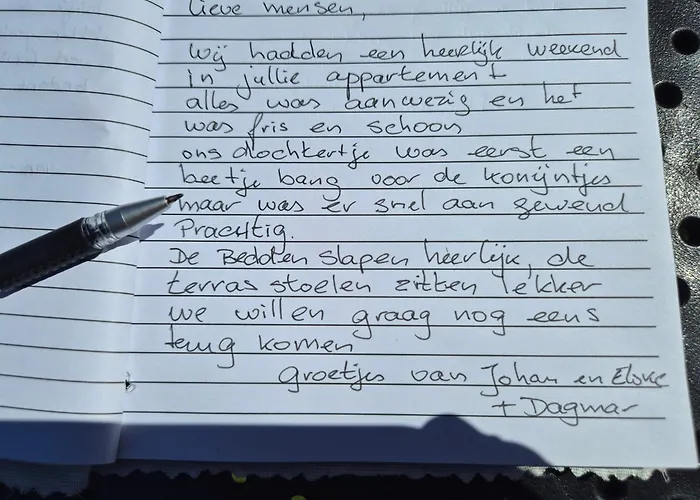 Lieve mensen,
Wij hadden een heerlijk weekend
in jullie appartement
alles was aanwezig en het
was fris en schoon
ons dochtertje was eerst een
beetje bang voor de konijntjes
maar was er snel aan gewend
Prachtig.
De Bedden slapen heerlijk, de
terras stoelen zitten lekker
we willen graag nog eens
terug komen
groetjes van Johan en
+ Dagmar